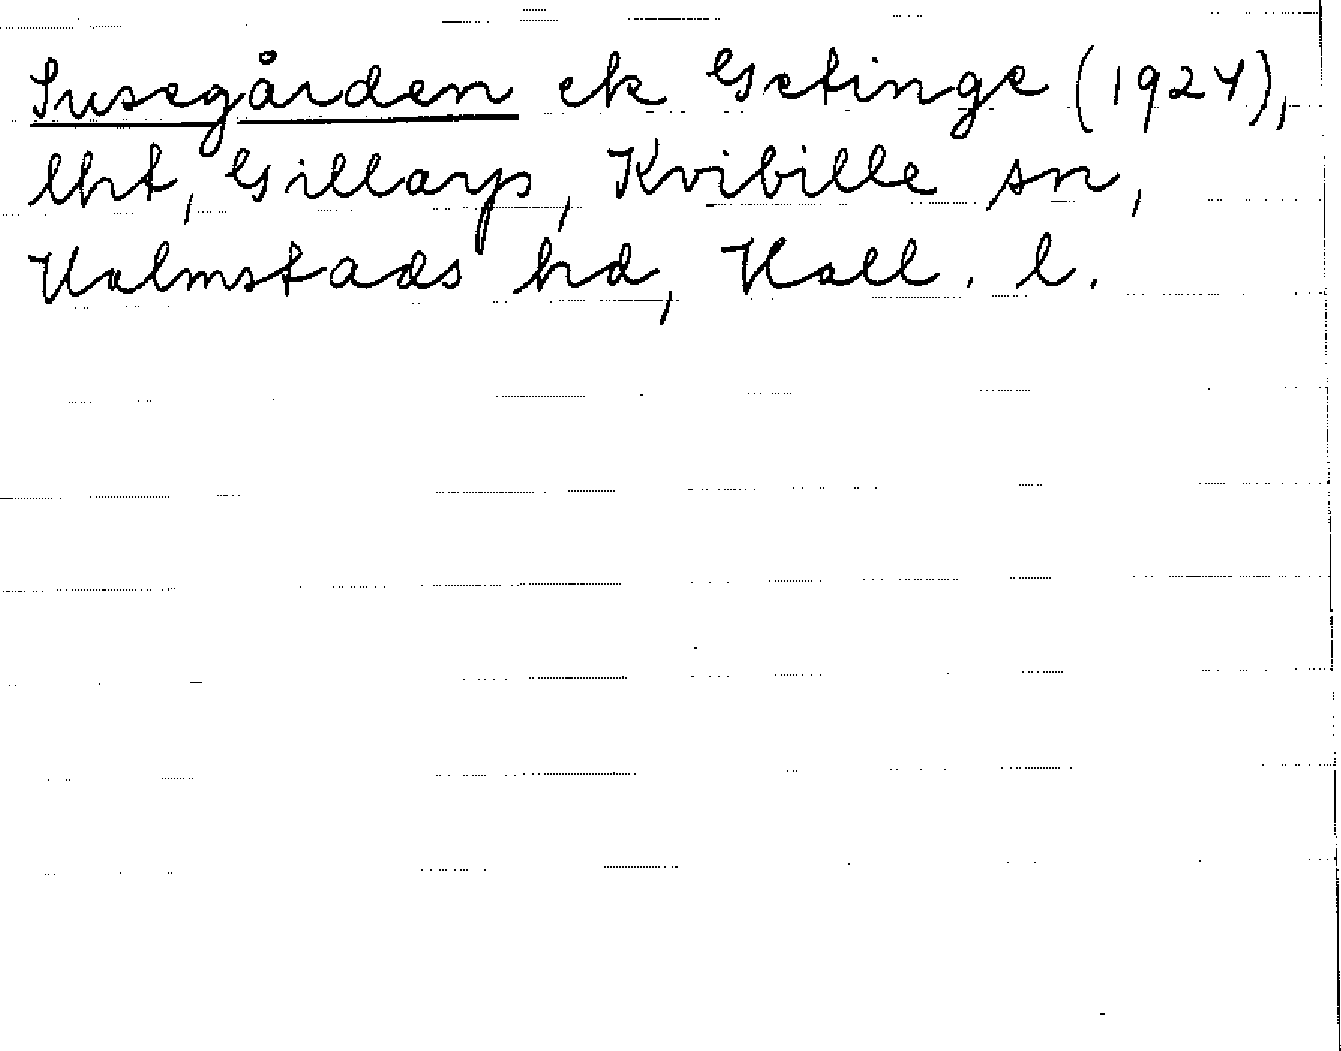 Susegården ek Getinge (1924),
lht, Gillarp, Kvibille sn,
Halmstads hd, Hall. l.